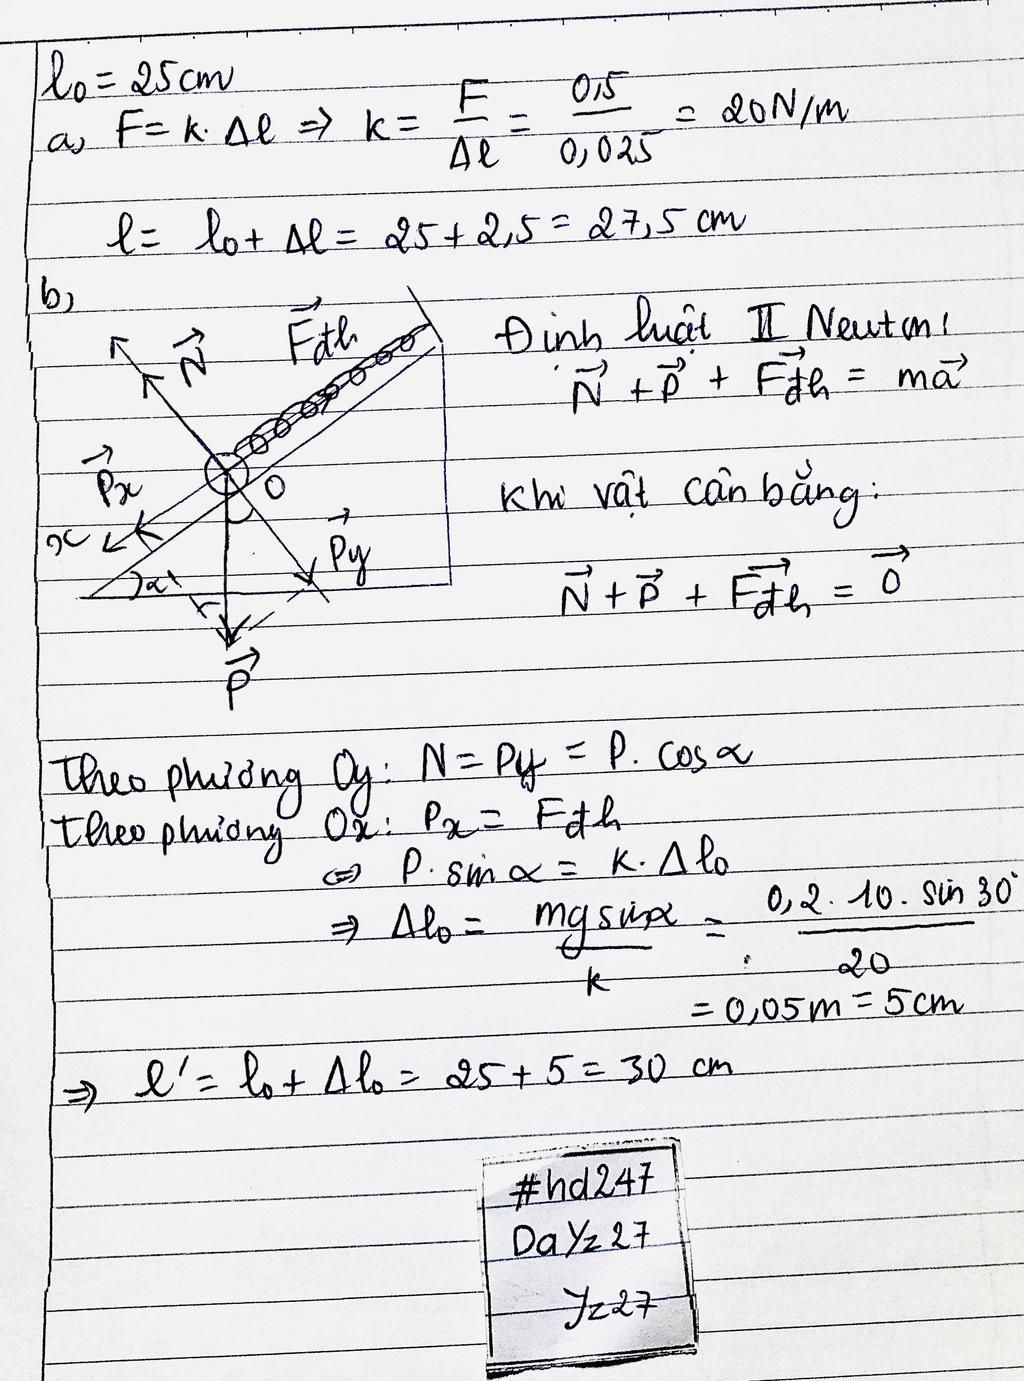 l₀ = 25cm
a, F = k. Δl ⇒ k = F/Δl = 0,5/0,025 = 20N/m
l = l₀ + Δl = 25 + 2,5 = 27,5 cm
b,
N⃗ F⃗đh
Định luật II Newton:
N⃗ + P⃗ + F⃗đh = ma⃗
P⃗x
O
x
P⃗y
α
P⃗
Khi vật cân bằng:
N⃗ + P⃗ + F⃗đh = 0⃗
Theo phương Oy: N = Py = P. cosα
Theo phương Ox: Px = Fđh
⇔ P. sinα = k. Δl₀
⇒ Δl₀ = mgsinα/k = 0,2. 10. sin 30°/20
= 0,05m = 5cm
⇒ l' = l₀ + Δl₀ = 25 + 5 = 30 cm
#hd247
DaYz27
Yz27